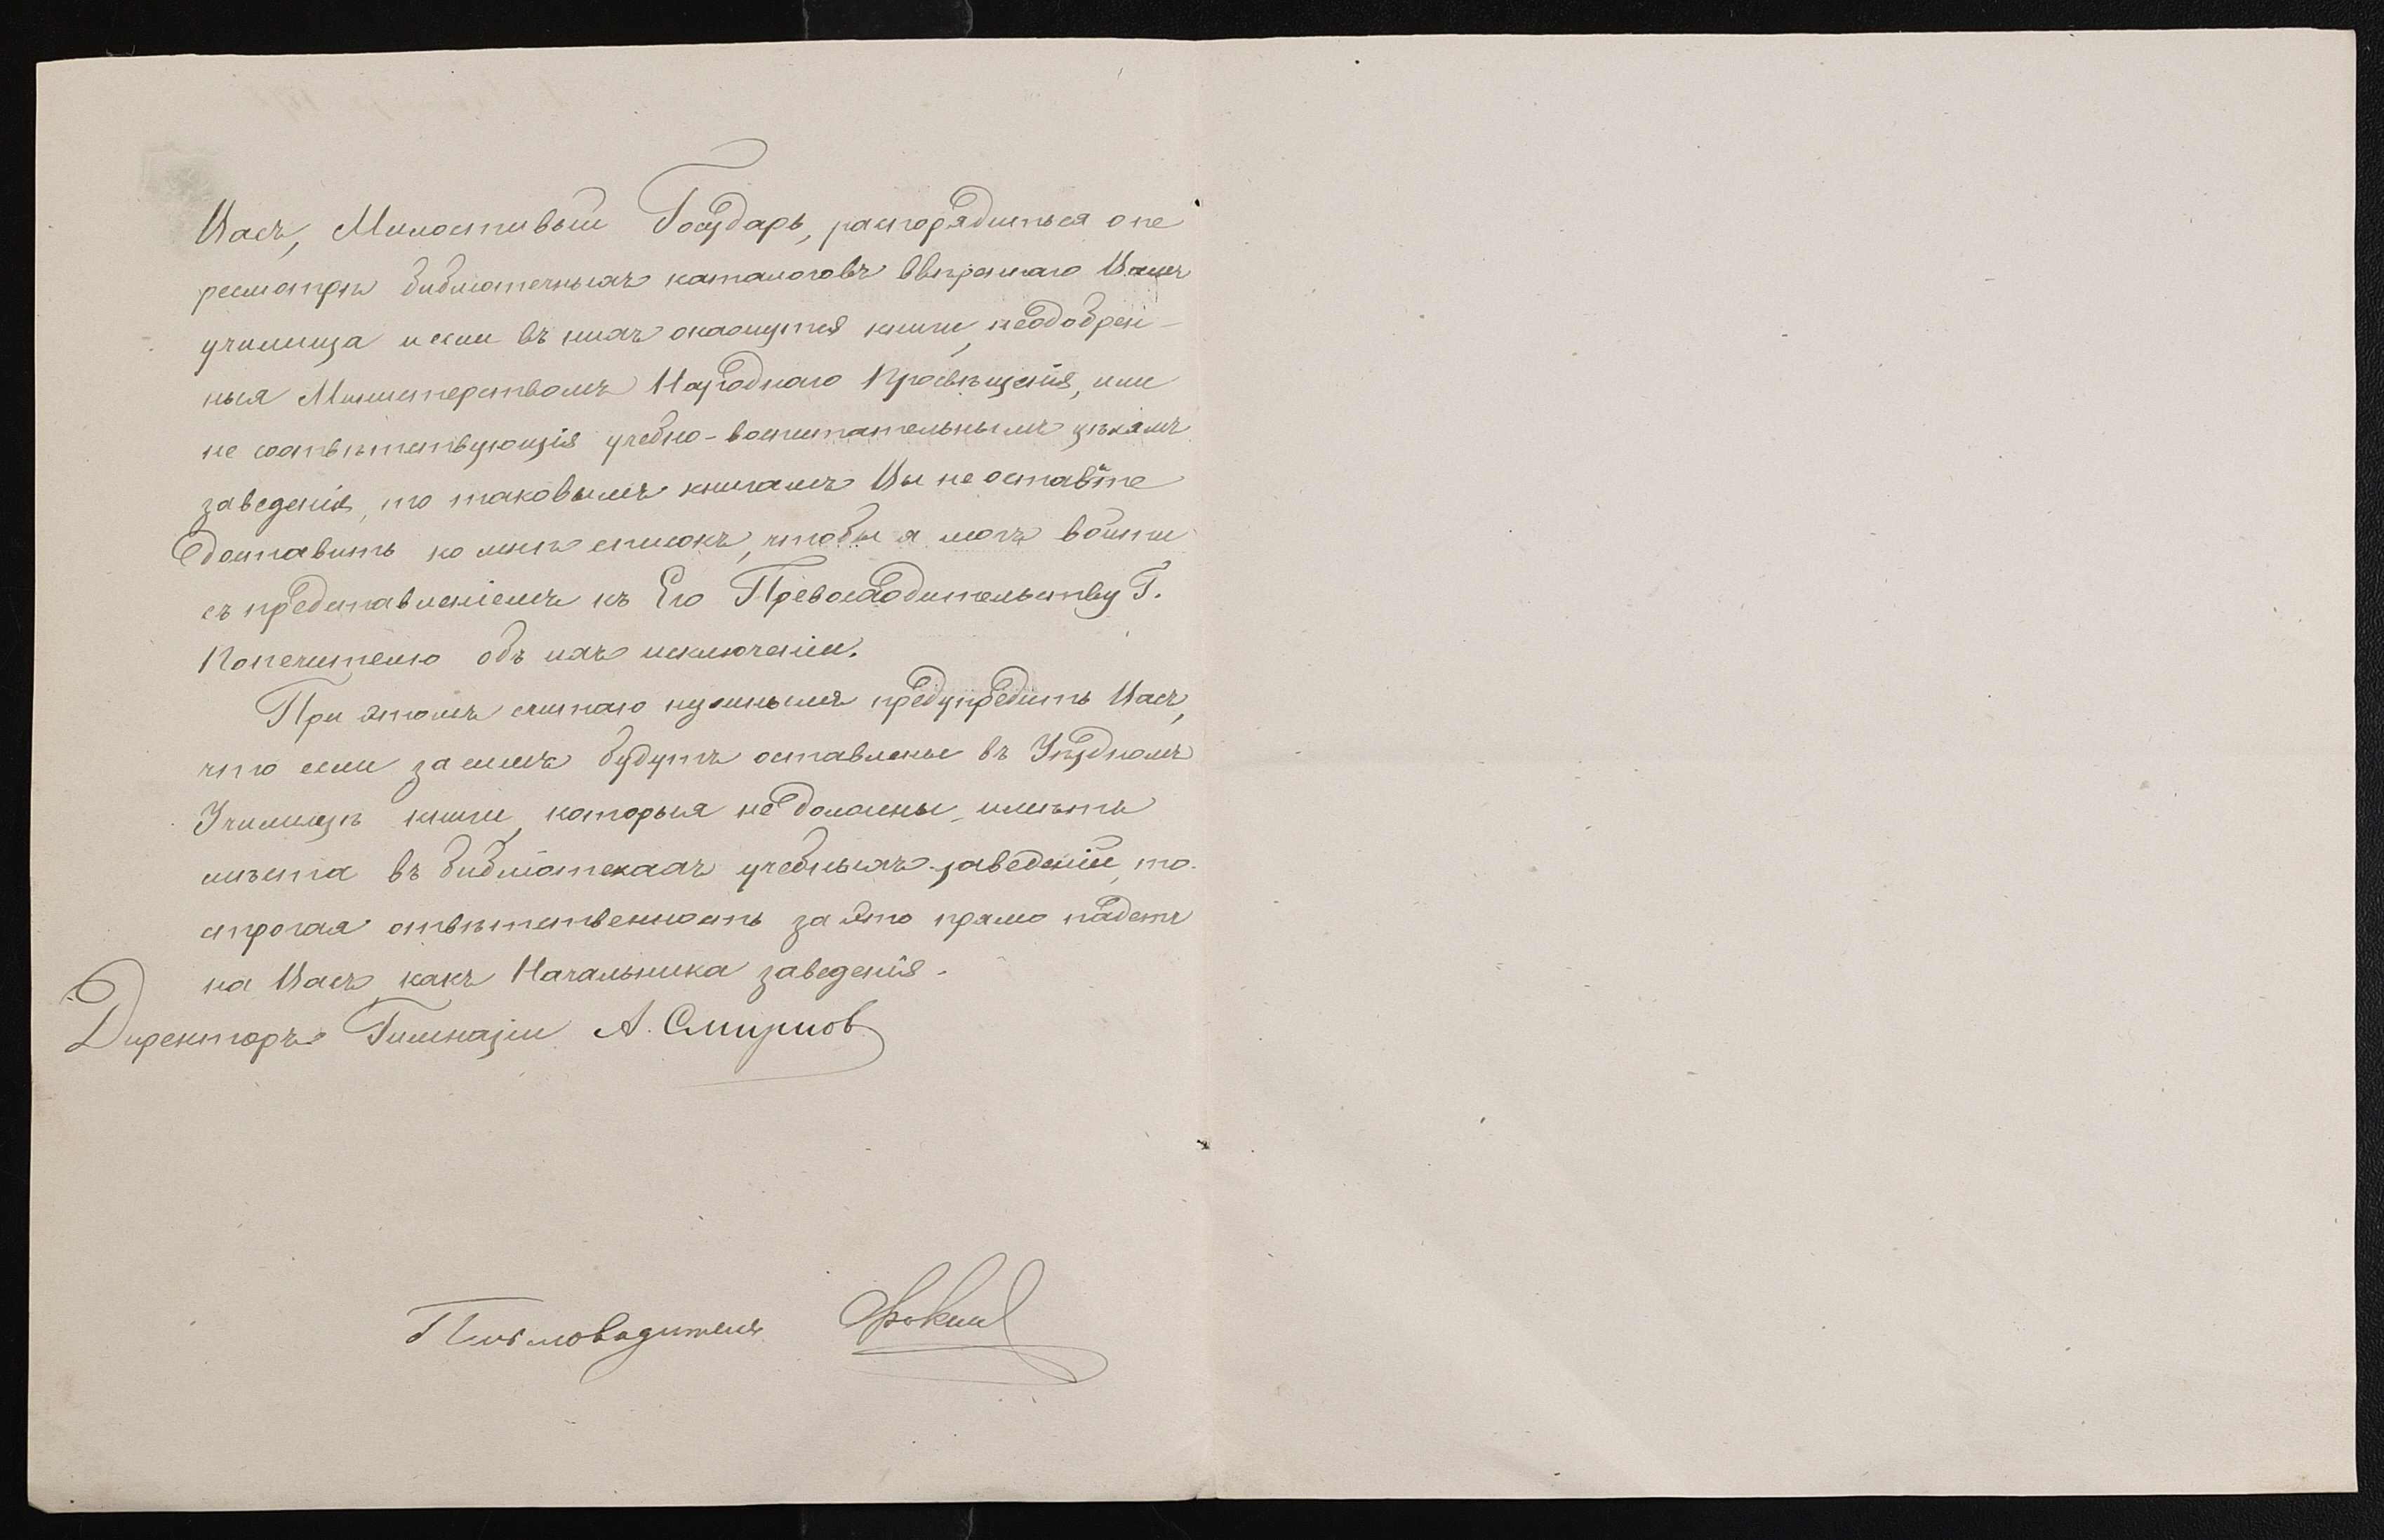 Васъ, Милостивый Государь, распорядиться о пе
ресмотрѣ библіотечныхъ каталоговъ ввѣреннаго Вамъ
училища и если въ нихъ окажутся книги, неодобрен-
ныя Министерствомъ Народнаго Просвѣщенія, или
не соотвѣтствующія учебно-воспитательнымъ цѣлямъ
заведенія, то таковымъ книгамъ Вы не оставьте
доставить ко мнѣ списокъ, чтобы я могъ войти
съ представленіемъ къ Его Превосходительству Г.
Попечителю объ ихъ исключеніи.
При этомъ считаю нужнымъ предупредить Васъ,
что если за симъ будутъ оставлены въ Уѣздномъ
Училищѣ книги, которыя не должны имѣть
мѣста въ библіотекахъ учебныхъ заведеній, то
строгая отвѣтственность за это прямо падетъ
на Васъ какъ Начальника заведенія.
Директоръ Гимназіи А. Смирнов
Письмоводитель Фокин